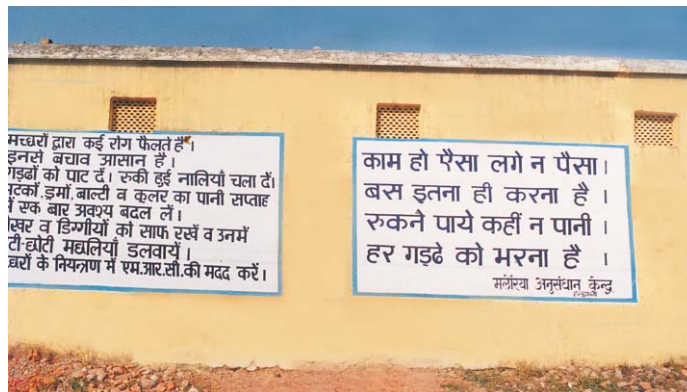 मच्छरों द्वारा कई रोग फैलते हैं ।
इनसे बचाव आसान है ।
गड्ढों को पाट दें । रुकी हुई नालियाँ चला दें।
मटकों, ड्रमों, बाल्टी व कूलर का पानी सप्ताह
में एक बार अवश्य बदल लें ।
व डिग्गीयों को साफ रखें व उनमें
छोटी मछलियाँ डलवायें ।
के नियन्त्रण में एम.आर.सी.की मदद करें ।
काम हो ऐसा लगे न पैसा ।
बस इतना ही करना है ।
रुकने पाये कहीं न पानी ।
हर गड्ढे को भरना है ।
मलेरिया अनुसंधान केन्द्र